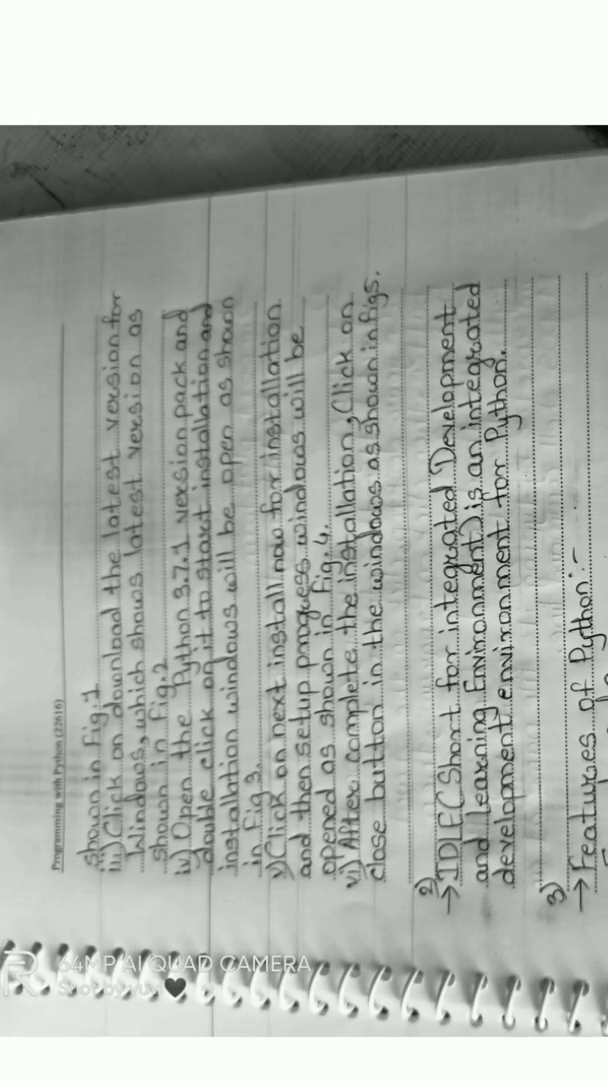 Programming with Python (22616)
shown in Fig.1
iii) Click on download the latest version for
Windows, which shows latest version as
shown in Fig.2
iv) Open the Python 3.7.1 version pack and
double click on it to start installation and
installation windows will be open as shown
in Fig 3.
v) Click on next install now for installation
and then setup progress windows will be
opened as shown in Fig. 4.
vi) After complete the installation, Click on
close button in the windows as shown in fig5.
2)
→ IDLE (Short for integrated Development
and Learning Environment) is an integrated
development environment for Python.
3)
→ Features of Python:-
64MP AI QUAD CAMERA
Shot by